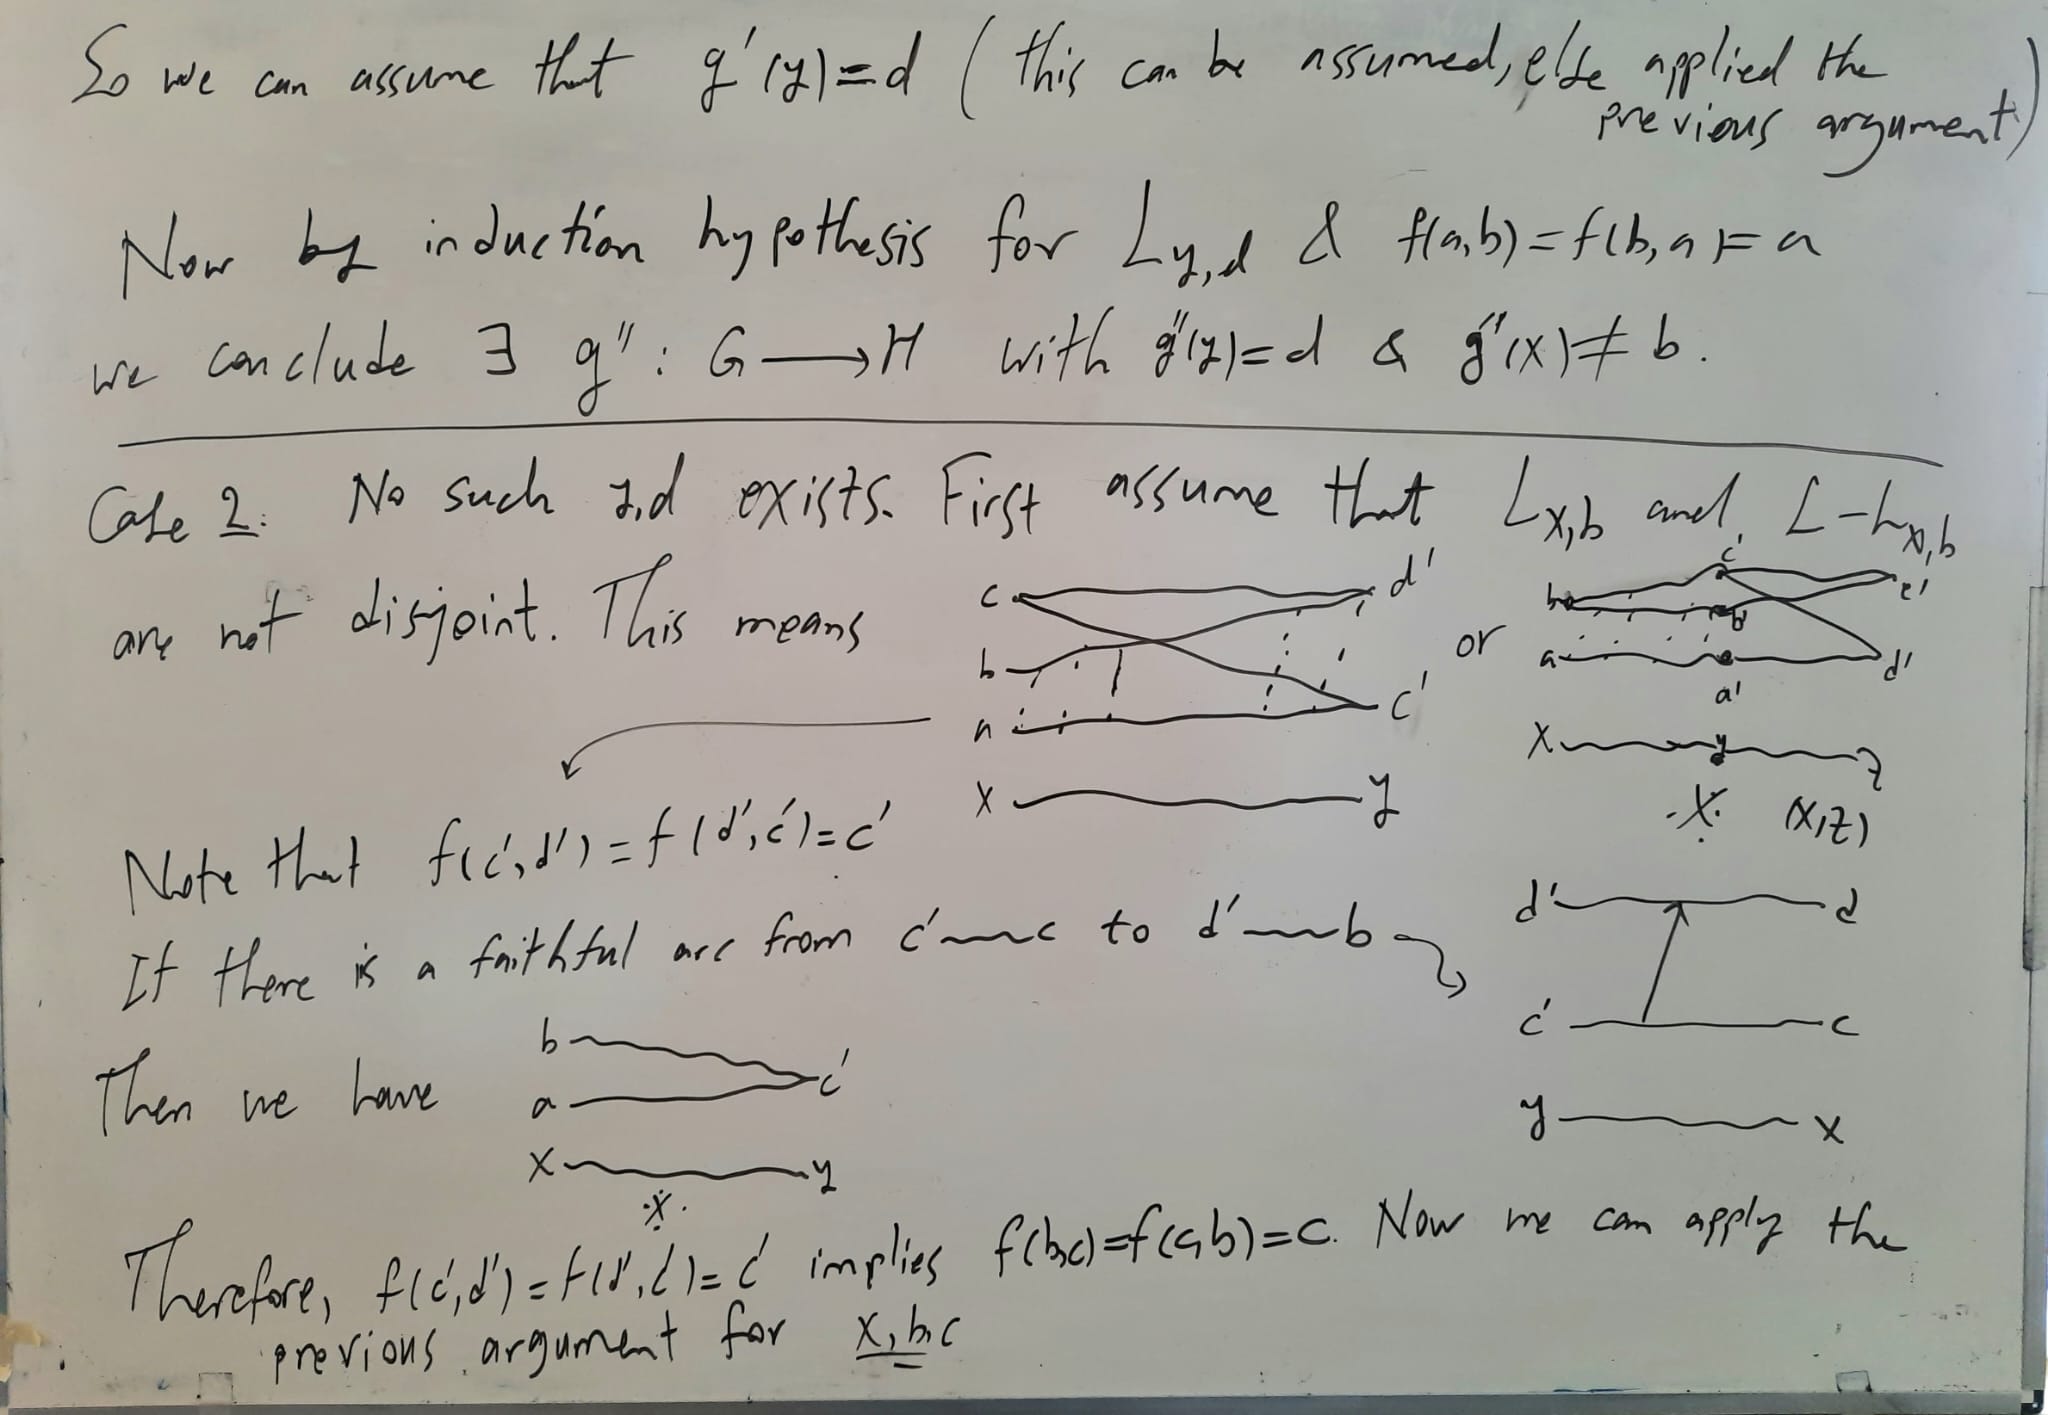 So we can assume that g'(y)=d (this can be assumed, else applied the
previous argument)
Now by induction hypothesis for L_{y,d} & f(a,b)=f(b,a)=a
we conclude ∃ g'': G⟶H with g''(y)=d & g''(x)≠b.
Case 2: No such y,d exists. First assume that L_{x,b} and L-L_{x,b}
are not disjoint. This means
c d'
b
a c'
x y
or
c'
b b' e'
a a' d'
x y z
(x,z)
Note that f(c',d')=f(d',c')=c'
If there is a faithful arc from c'~~c to d'~~b
d' d
c' c
y x
Then we have
b
a c'
x y
Therefore, f(c',d')=f(d',c')=c' implies f(b,c)=f(c,b)=c. Now we can apply the
previous argument for x, b, c